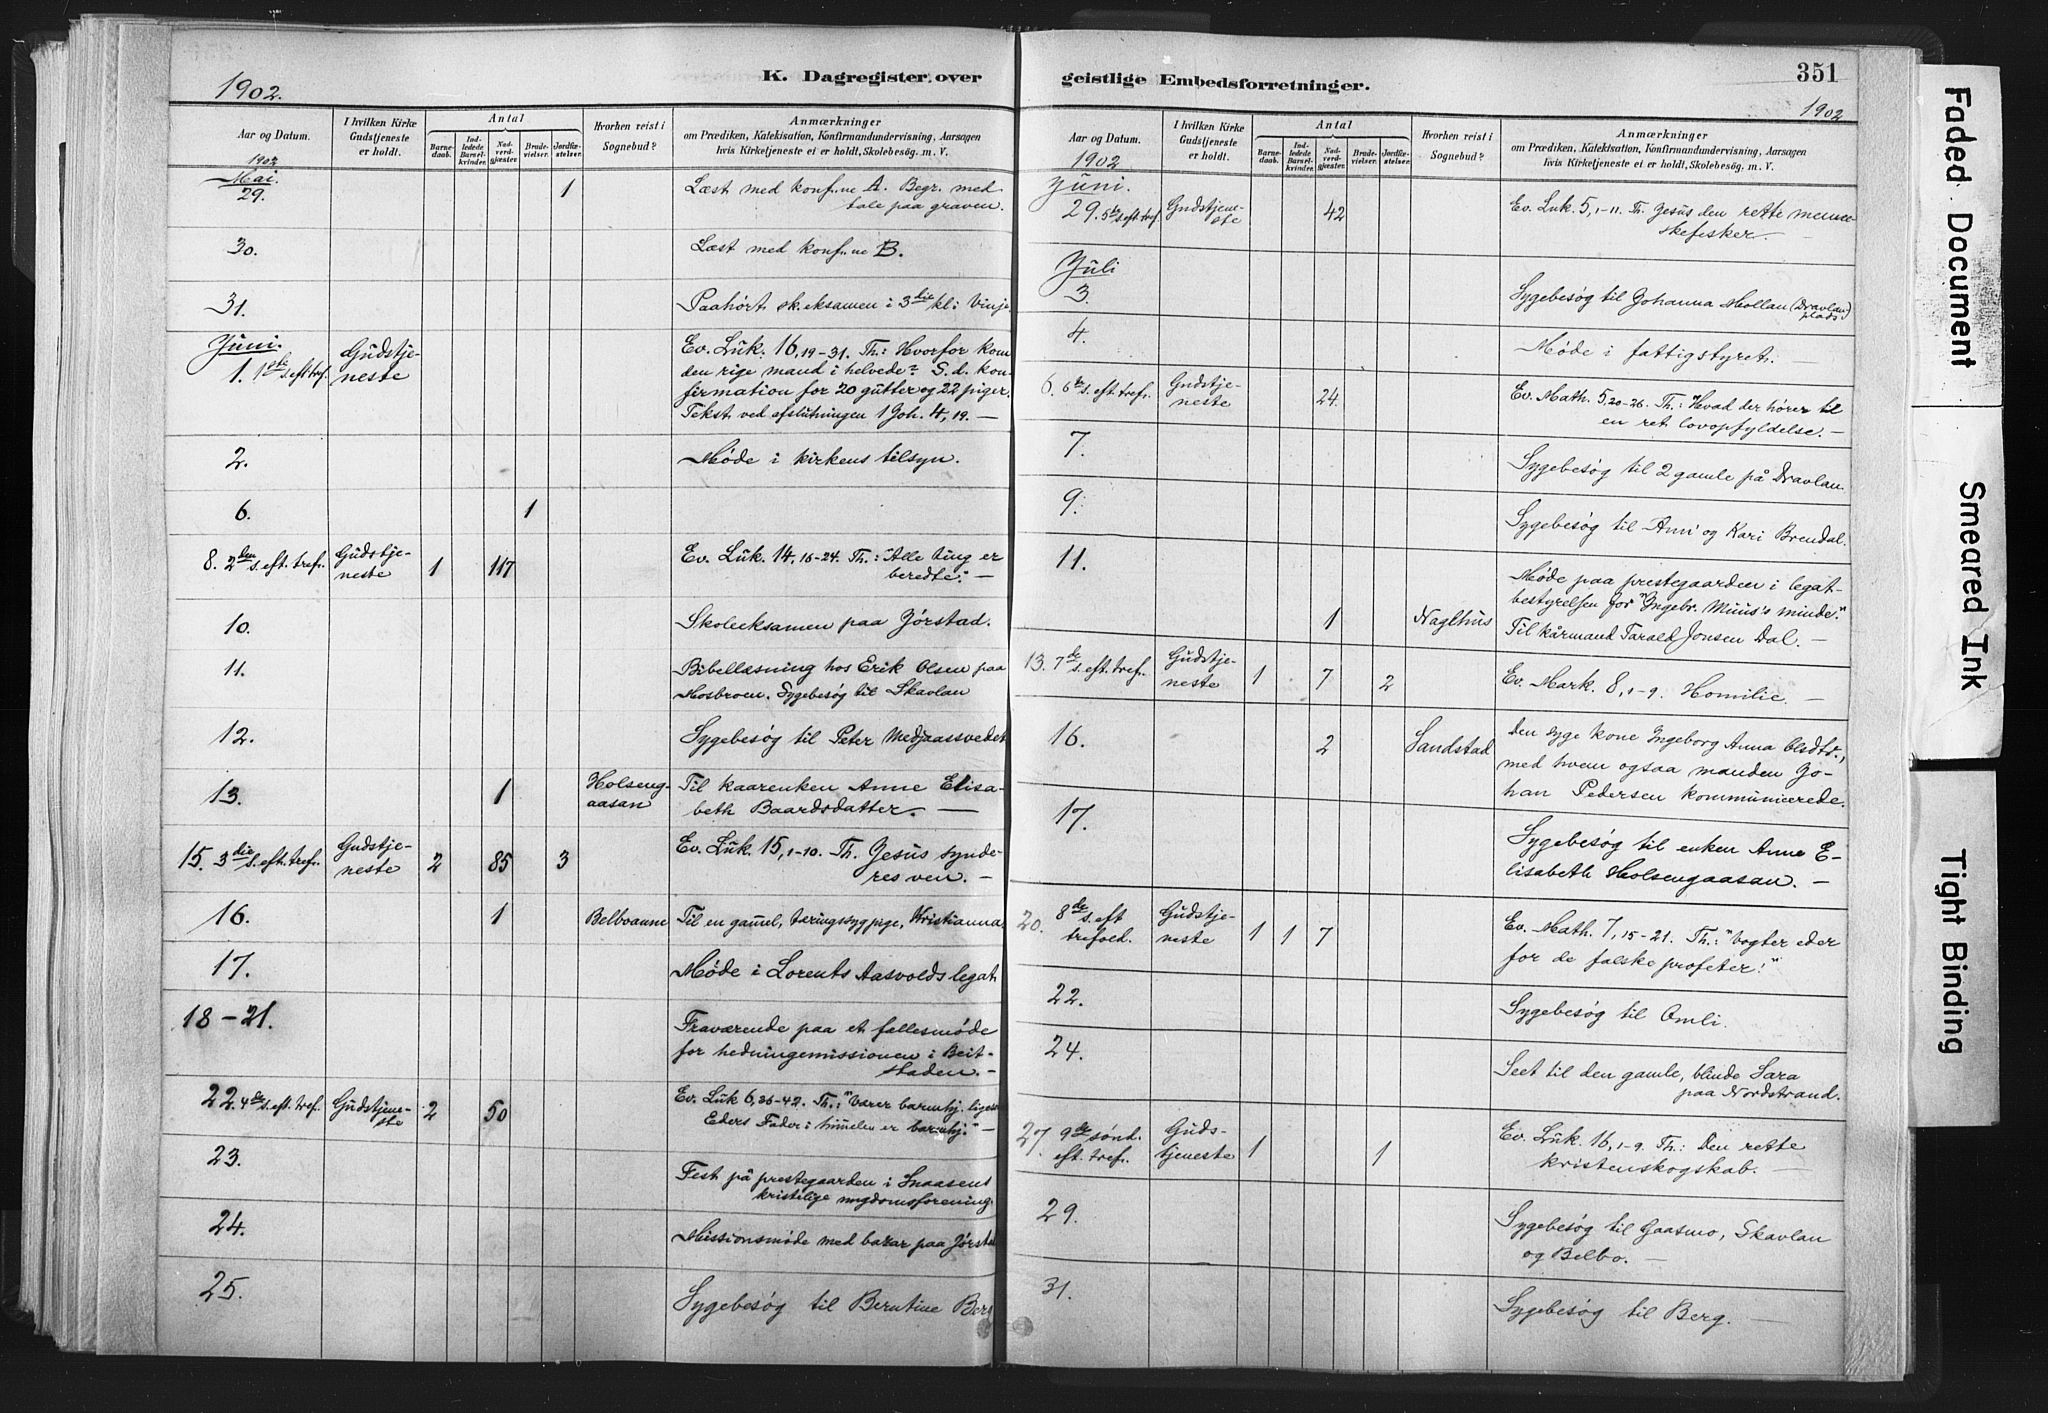 K. Dagregister over
1902.
Aar og Datum.
I hvilken Kirke
Gudstjeneste
er holdt.
Antal
Barne-
daab.
Ind-
ledede
Barsel-
kvinder.
Nad-
verd-
gjæster.
Brude-
vielser.
Jordfæ-
stelser.
Hvorhen reist i
Sognebud?
Anmærkninger
om Prædiken, Katekisation, Konfirmandundervisning, Aarsagen
hvis Kirketjeneste ei er holdt, Skolebesøg. m. V.
1902
Mai.
29. 1 Læst med konf.ne A. Begr. med
tale paa graven.
30. Læst med konf.ne B.
31. Paahørt sk.eksamen i 3die kl. i Vinje
Juni.
1. 1ste s. eft. tref. Gudstje-
neste
Ev. Luk. 16,19-31. Th.: Hvorfor kom
den rige mand i helvede? S. d. kon-
firmation for 20 gutter og 22 piger.
Tekst ved afslutningen 1 Joh. 4, 19. —
2. Møde i kirkens tilsyn.
6. 1
8. 2den s. eft. tref. Gudstje-
neste 1 117 Ev. Luk. 14,16-24. Th.: "Alle ting er
beredte". —
10. Skoleeksamen paa Jørstad.
11. Bibellæsning hos Erik Olsen paa
Mosbroen. Sygebesøg til Skavlan
12. Sygebesøg til Peter Medjaassvedet
13. 1 Holseng-
aasan Til kaarenken Anne Elisa-
beth Baardsdatter. —
15. 3die s. eft. tref. Gudstje-
neste 2 85 3 Ev. Luk. 15,1-10. Th. Jesus synde-
res ven. —
16. 1 Belboaune Til en gammel, tæringssyg pige, Kristianna
17. Møde i Lorents Aasvolds legat
18-21. Fraværende paa et fællesmøde
for hedningemissionen i Beit-
staden. —
22. 4de s. eft. tref. Gudstjene-
ste 2 50 Ev. Luk 6,36-42. Th.: "Værer barmhj. ligesom
Eders Fader i himmelen er barmhj." —
23. Fest på prestegaarden i Snaasens
kristilige ungdomsforening.
24. Missionsmøde med bazar paa Jørstad
25. Sygebesøg til Berntine Berg
geistlige Embedsforretninger.
351
1902
Aar og Datum.
I hvilken Kirke
Gudstjeneste
er holdt.
Antal
Barne-
daab.
Ind-
ledede
Barsel-
kvinder.
Nad-
verd-
gjæster.
Brude-
vielser.
Jordfæ-
stelser.
Hvorhen reist i
Sognebud?
Anmærkninger
om Prædiken, Katekisation, Konfirmandundervisning, Aarsagen
hvis Kirketjeneste ei er holdt, Skolebesøg. m. V.
1902
Juni.
29. 5te s. eft. tref. Gudstjene-
ste 42 Ev. Luk. 5,1-11. Th. Jesus den rette menne-
skefisker. —
Juli
3. Sygebesøg til Johanna Mollan (Dravlan
plads)
4. Møde i fattigstyret. —
6. 6te s. eft. tref. Gudstje-
neste 24. Ev. Math. 5,20-26. Th.: "Hvad der hører til
en ret lovopfyldelse. —
7. Sygebesøg til 2 gamle på Dravlan.
9. Sygebesøg til Ani og Kari Brendal.
11. Møde paa prestegaarden i legat-
bestyrelsen for "Ingebr. Muus's minde."
1 Naglhus Til kårmand Tarald Jonsen Dal. —
13. 7de s. eft. tref. Gudstje-
neste 1 7 2 Ev. Mark. 8,1-9. Homilie. —
16. 2 Sandstad Den syge kone Ingeborg Anna Olsdtr.,
med hvem ogsaa manden Jo-
han Pedersen kommunicerede.
17. Sygebesøg til enken Anne E-
lisabeth Holsengaasan. —
20. 8de s. eft
trefold. Gudstje-
neste 1 1 7 Ev. Math. 7,15-21. Th.: "Vogter eder
for de falske profeter!"
22. Sygebesøg til Omli.
24. Seet til den gamle, blinde Sara
paa Nordstrand.
27. 9de sønd.
eft. tref. Guds-
tjeneste 1 1 Ev. Luk. 16,1-9. Th.: Den rette
kristenskogskab. —
29. Sygebesøg til Gaasmo, Skavlan
og Belbo. —
31. Sygebesøg til Berg. —
Faded Document
Smeared Ink
Tight Binding